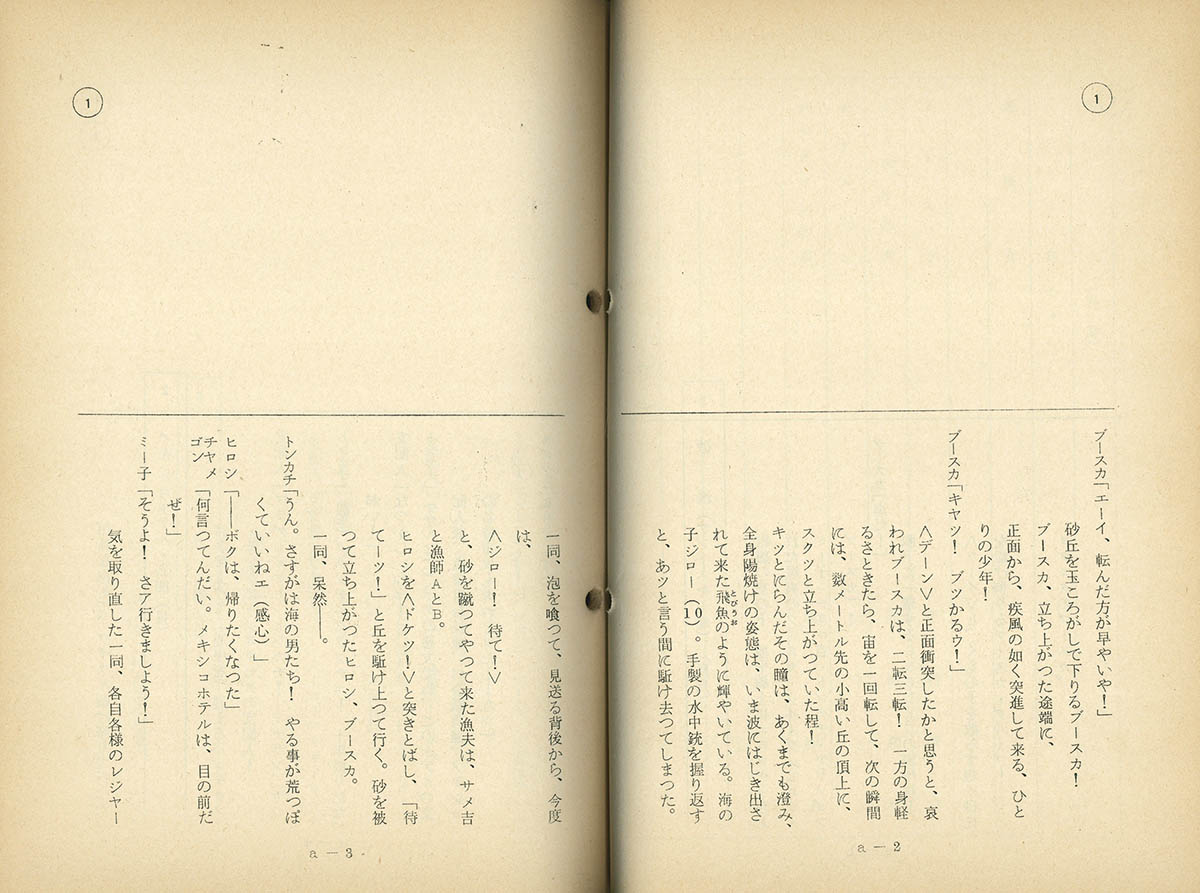 ①
ブースカ「エーイ、転んだ方が早やいや!」
砂丘を玉ころがしで下りるブースカ!
ブースカ、立ち上がつた途端に、
正面から、疾風の如く突進して来る、ひと
りの少年!
ブースカ「キヤツ! ブツかるウ!」
〈デーン〉と正面衝突したかと思うと、哀
われブースカは、二転三転! 一方の身軽
るさときたら、宙を一回転して、次の瞬間
には、数メートル先の小高い丘の頂上に、
スクツと立ち上がつていた程!
キツとにらんだその瞳は、あくまでも澄み、
全身陽焼けの姿態は、いま波にはじき出さ
れて来た飛魚のように輝やいている。海の
とびうお
子ジロー(10)。手製の水中銃を握り返す
と、あツと言う間に駈け去つてしまつた。
a－2
①
一同、泡を喰つて、見送る背後から、今度
は、
〈ジロー! 待て!〉
と、砂を蹴つてやつて来た漁夫は、サメ吉
と漁師AとB。
ヒロシを〈ドケツ!〉と突きとばし、「待
てーツ!」と丘を駈け上つて行く。砂を被
つて立ち上がつたヒロシ、ブースカ。
一同、呆然――。
トンカチ「うん。さすがは海の男たち! やる事が荒つぽ
くていいねエ(感心)」
ヒロシ「――ボクは、帰りたくなつた」
チヤメゴン「何言つてんだい。メキシコホテルは、目の前だ
ぜ!」
ミー子「そうよ! さア行きましよう!」
気を取り直した一同、各自各様のレジャー
a－3